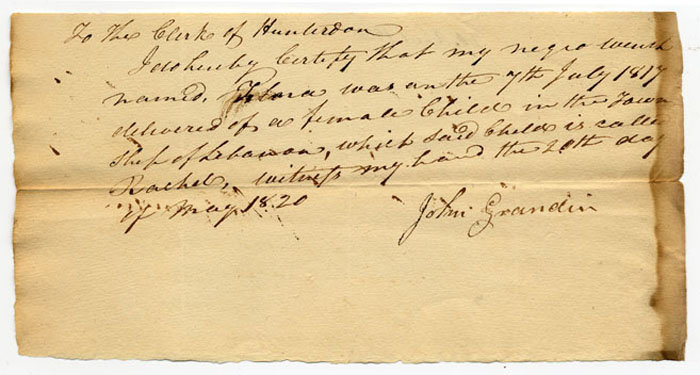 To The Clerk of Hunterdon
I do hereby Certify that my negro wench
named, Flora was on the 7th July 1817
delivered of a female Child in the Town
ship of Lebanon, which said Child is called
Rachel, witness my hand the 20th day
of May 1820
John Grandin